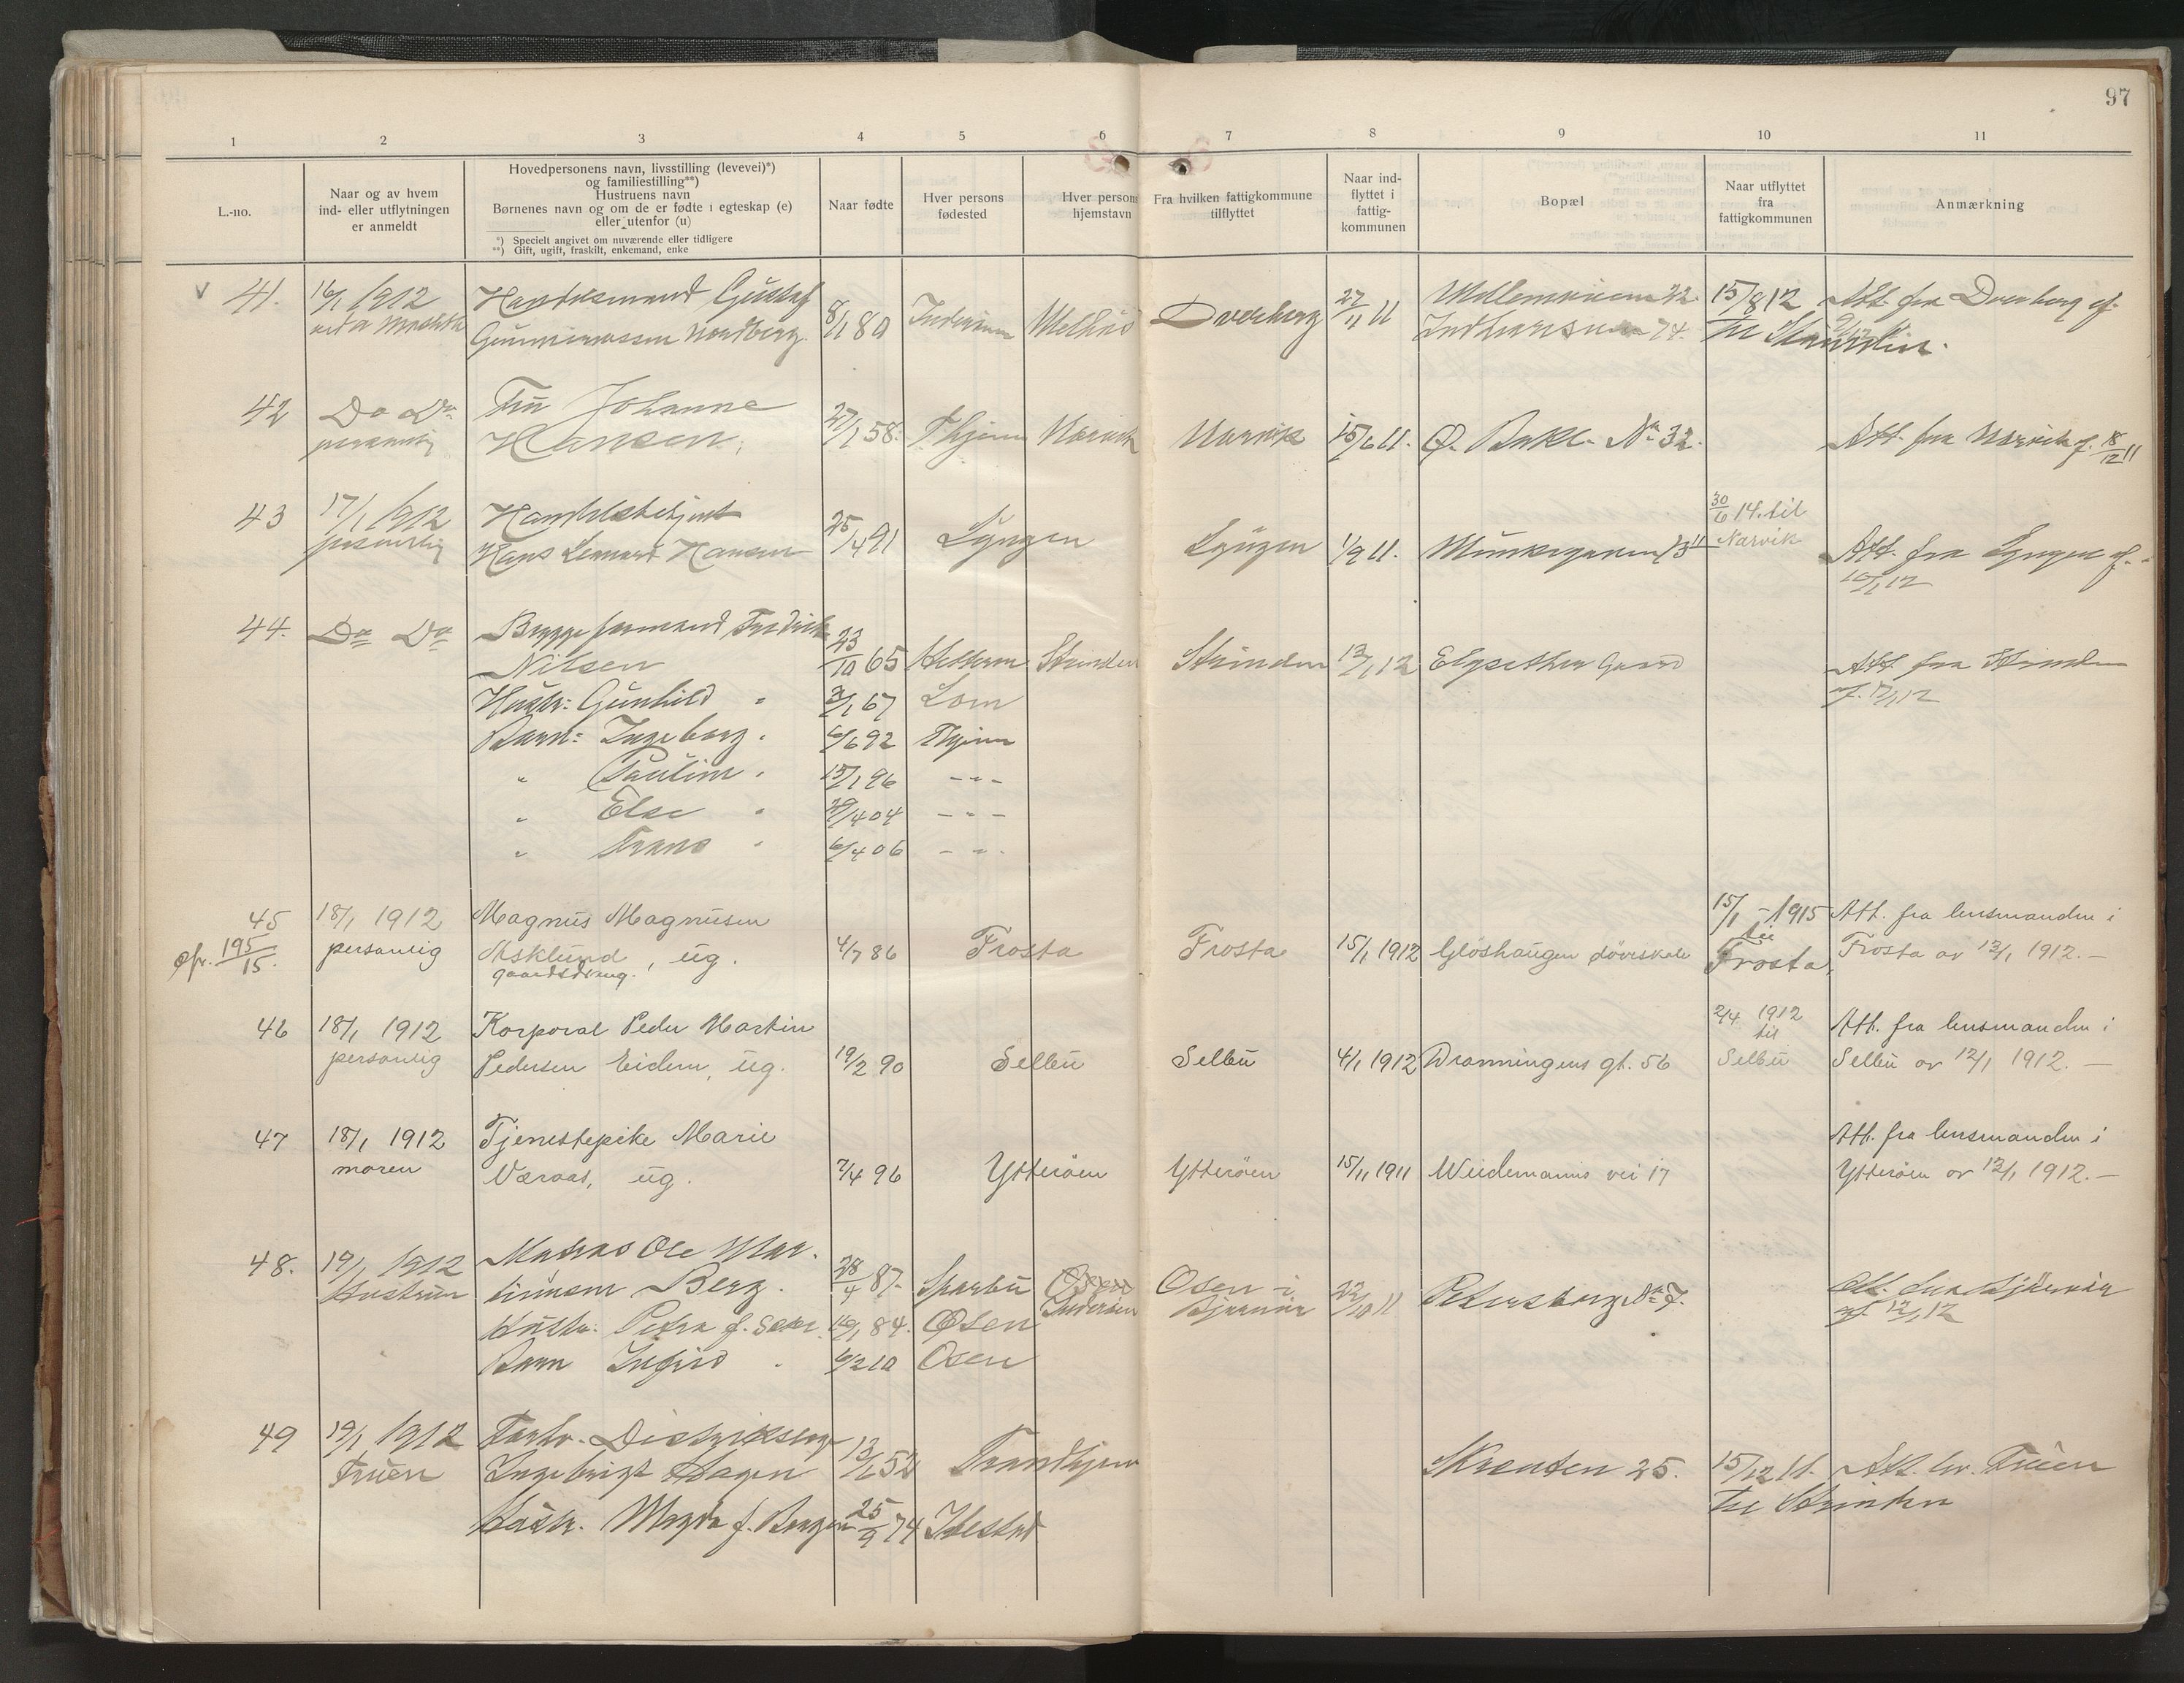 97
1 2 3 4 5 6 7 8 9 10 11
L.-no.
Naar og av hvem
ind- eller utflytningen
er anmeldt
Hovedpersonens navn, livsstilling (levevei)*)
og familiestilling**)
Hustruens navn
Børnenes navn og om de er fødte i egteskap (e)
eller utenfor (u)
*) Specielt angivet om nuværende eller tidligere
**) Gift, ugift, fraskilt, enkemand, enke
Naar fødte
Hver persons
fødested
Hver persons
hjemstavn
Fra hvilken fattigkommune
tilflyttet
Naar ind-
flyttet i
fattig-
kommunen
Bopæl
Naar utflyttet
fra
fattigkommunen
Anmærkning
v 41. 16/1 1912 Gustaf 8/1 80 Melhus Dverberg 27/11 11 22 15/8 12 Att. fra Dverberg af
Nordberg 74. til
42 Do Do Fru Johanne
personlig Hansen. 27/1 58. Thjem Narvik Narvik 15/6 11. Ø. Bakl. No 32. Att. fra Narvik af 18/12 11
43 17/1 1912 Handelsbetjent 30/6 14. til
personlig Hans Lennart Hansen 25/4 91 Lyngen Lyngen 1/9 11. Munkegaden Narvik Att. fra Lyngen af
10/1 12
44. Do Do Bryggeformand Fredrik
Nilsen 23/10 65 Strinden Strinden 13/1 12 Elgsether Gaard Att. fra Strinden
af. 12/1 12
Hustr: Gunhild " 3/1 67 Lom
Barn: Ingeborg " 6/6 92 Thjem
" Pauline " 15/1 96 - " -
" Else " 29/4 04 - " -
" Frans " 6/4 06 - " -
45 18/1 1912 Magnus Magnusen 15/1 - 1915 Att. fra lensmanden i
cfr. 195/15. personlig Asklund, ug. 4/7 86 Frosta Frosta 15/1 1912 Gløshaugen døveskole til Frosta. Frosta av 12/1 1912. -
gaardsdreng.
46 18/1 1912 Korporal Peder Martin 2/4 1912 Att. fra lensmanden i
personlig Pedersen Eidem, ug. 19/2 90 Selbu Selbu 4/1 1912 Dronningens gt. 56 til Selbu Selbu av 12/1 1912. -
47 18/1 1912 Tjenestepike Marie Att. fra lensmanden i
moren Væraas, ug. 7/4 96 Ytterøen Ytterøen 15/11 1911 Weidemanns vei 17 Ytterøen av 12/1 1912. -
48. 19/1 1912 Matros Ole Mar-
Hustruen tinusen Berg. 28/4 87. Sparbu Osen Inderøen Osen i Bjørnør 22/10 11 Petersborg No 7. Att. fra Bjørnør
af. 12/1 12
Hustr. Petra f. 16/1 84. Osen
Barn 6/2 10 Osen
49 19/1 1912 Distrikslæge
Fruen Ingebrigt Hagen 13/1 52 Trondhjem Skrenten 25. 15/12 11. Att. av. Fruen
til Strinden
Hustr. Magda f. 25/9 74 Ibestad